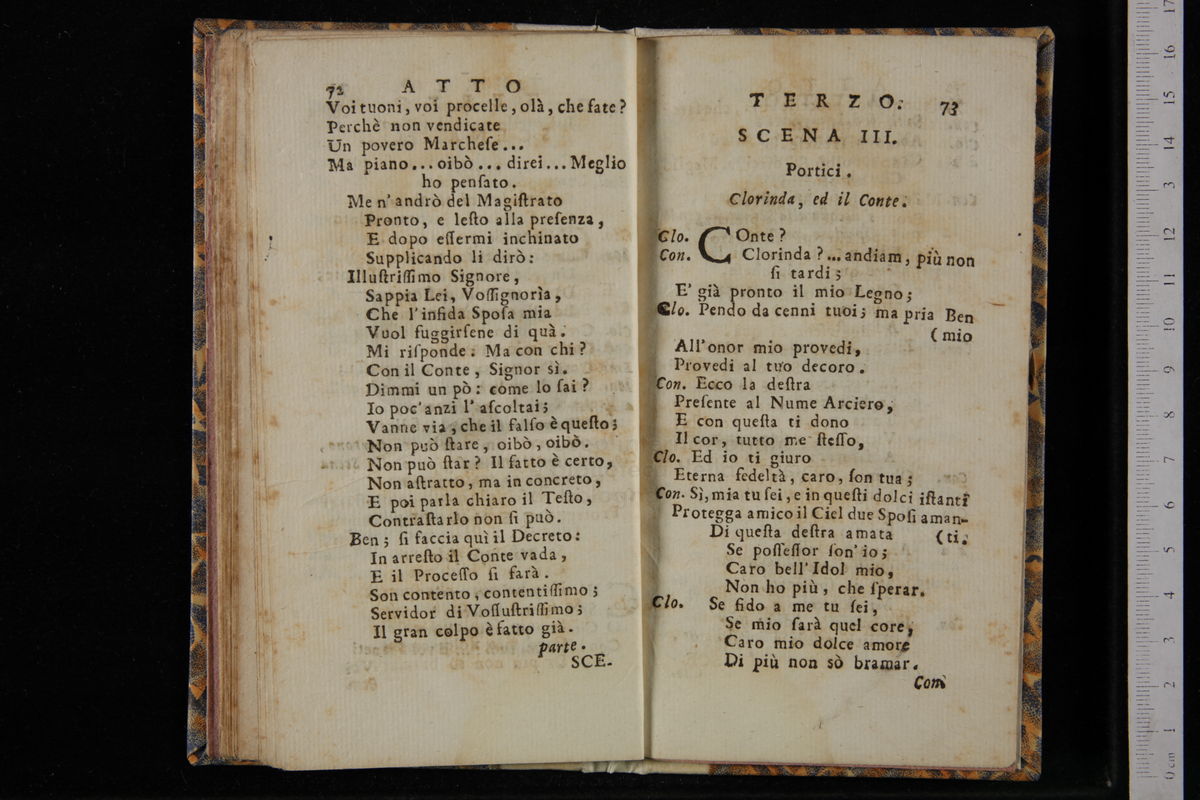 72 ATTO
Voi tuoni, voi procelle, olà, che fate?
Perchè non vendicate
Un povero Marcheſe...
Ma piano... oibò... direi... Meglio
ho penſato.
Me n'andrò del Magiſtrato
Pronto, e leſto alla preſenza,
E dopo eſſermi inchinato
Supplicando li dirò:
Illuſtriſſimo Signore,
Sappia Lei, Voſſignorìa,
Che l'infida Spoſa mia
Vuol fuggirſene di quà.
Mi riſponde. Ma con chi?
Con il Conte, Signor sì.
Dimmi un pò: come lo ſai?
Io poc'anzi l'aſcoltai;
Vanne via, che il falſo è queſto;
Non può ſtare, oibò, oibò.
Non può ſtar? Il fatto è certo,
Non aſtratto, ma in concreto,
E poi parla chiaro il Teſto,
Contraſtarlo non ſi può.
Ben; ſi faccia quì il Decreto:
In arreſto il Conte vada,
E il Proceſſo ſi farà.
Son contento, contentiſſimo;
Servidor di Voſſuſtriſſimo;
Il gran colpo è fatto già.
parte.
SCE-
TERZO. 73
SCENA III.
Portici.
Clorinda, ed il Conte.
Clo. COnte?
Con. Clorinda?... andiam, più non
ſi tardi;
E' già pronto il mio Legno;
Clo. Pendo da cenni tuoi; ma pria Ben
(mio
All'onor mio provedi,
Provedi al tuo decoro.
Con. Ecco la deſtra
Preſente al Nume Arciero,
E con queſta ti dono
Il cor, tutto me ſteſſo,
Clo. Ed io ti giuro
Eterna fedeltà, caro, ſon tua;
Con. Sì, mia tu ſei, e in queſti dolci iſtanti
Protegga amico il Ciel due Spoſi aman-
Di queſta deſtra amata (ti.
Se poſſeſſor ſon'io;
Caro bell'Idol mio,
Non ho più, che ſperar.
Clo. Se fido a me tu ſei,
Se mio ſarà quel core,
Caro mio dolce amore
Di più non sò bramar.
Con
0 cm 1 2 3 4 5 6 7 8 9 10 11 12 13 14 15 16 17